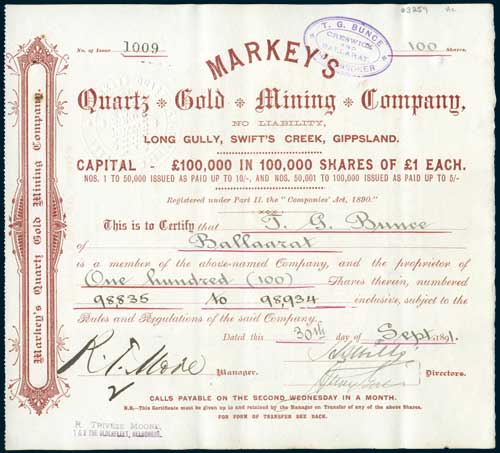 03259
T. G. BUNCE
CRESWICK
AND
BALLARAT
No. of Issue 1009
100 Shares.
MARKEY'S
Quartz Gold Mining Company,
NO LIABILITY,
LONG GULLY, SWIFT'S CREEK, GIPPSLAND.
CAPITAL - £100,000 IN 100,000 SHARES OF £1 EACH.
NOS. 1 TO 50,000 ISSUED AS PAID UP TO 10/-, AND NOS. 50,001 TO 100,000 ISSUED AS PAID UP TO 5/-
Registered under Part II. the "Companies' Act, 1890."
This is to Certify that T. G. Bunce
of Ballaarat
is a member of the above-named Company, and the proprietor of
One hundred (100) Shares therein, numbered
98835 to 98,934 inclusive, subject to the
Rules and Regulations of the said Company.
Dated this 30th day of Sept 1891.
R. T. Moore
Manager.
Directors.
CALLS PAYABLE ON THE SECOND WEDNESDAY IN A MONTH.
N.B.—This Certificate must be given up to and retained by the Manager on Transfer of any of the above Shares.
FOR FORM OF TRANSFER SEE BACK.
R. TRIVESS MOORE,
THE OLDERFLEET, MELBOURNE.
Markey's Quartz Gold Mining Company.